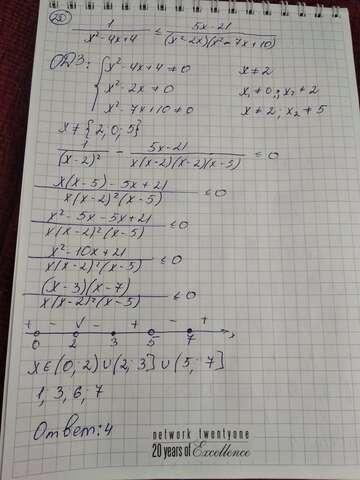 25
1/(x²-4x+4) ≤ (5x-21)/((x²-2x)(x²-7x+10))
ОДЗ: { x²-4x+4≠0 x≠2
x²-2x≠0 x₁≠0; x₂≠2
x²-7x+10≠0 x≠2; x₂≠5
x≠{2,0;5}
1/(x-2)² - (5x-21)/(x(x-2)(x-2)(x-5)) ≤0
(x(x-5)-5x+21)/(x(x-2)²(x-5)) ≤0
(x²-5x-5x+21)/(x(x-2)²(x-5)) ≤0
(x²-10x+21)/(x(x-2)²(x-5)) ≤0
((x-3)(x-7))/(x(x-2)²(x-5)) ≤0
+ - - + - +
0 2 3 5 7
x∈(0;2)∪(2;3]∪(5;7]
1, 3, 6, 7
Ответ: 4
network twentyone
20 years of Excellence